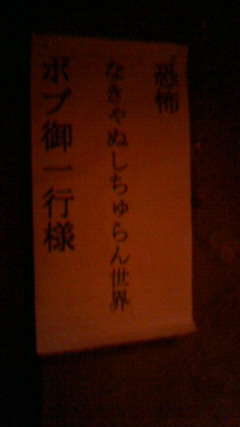 恐怖
なきゃぬしちゅらん世界
ボブ御一行様